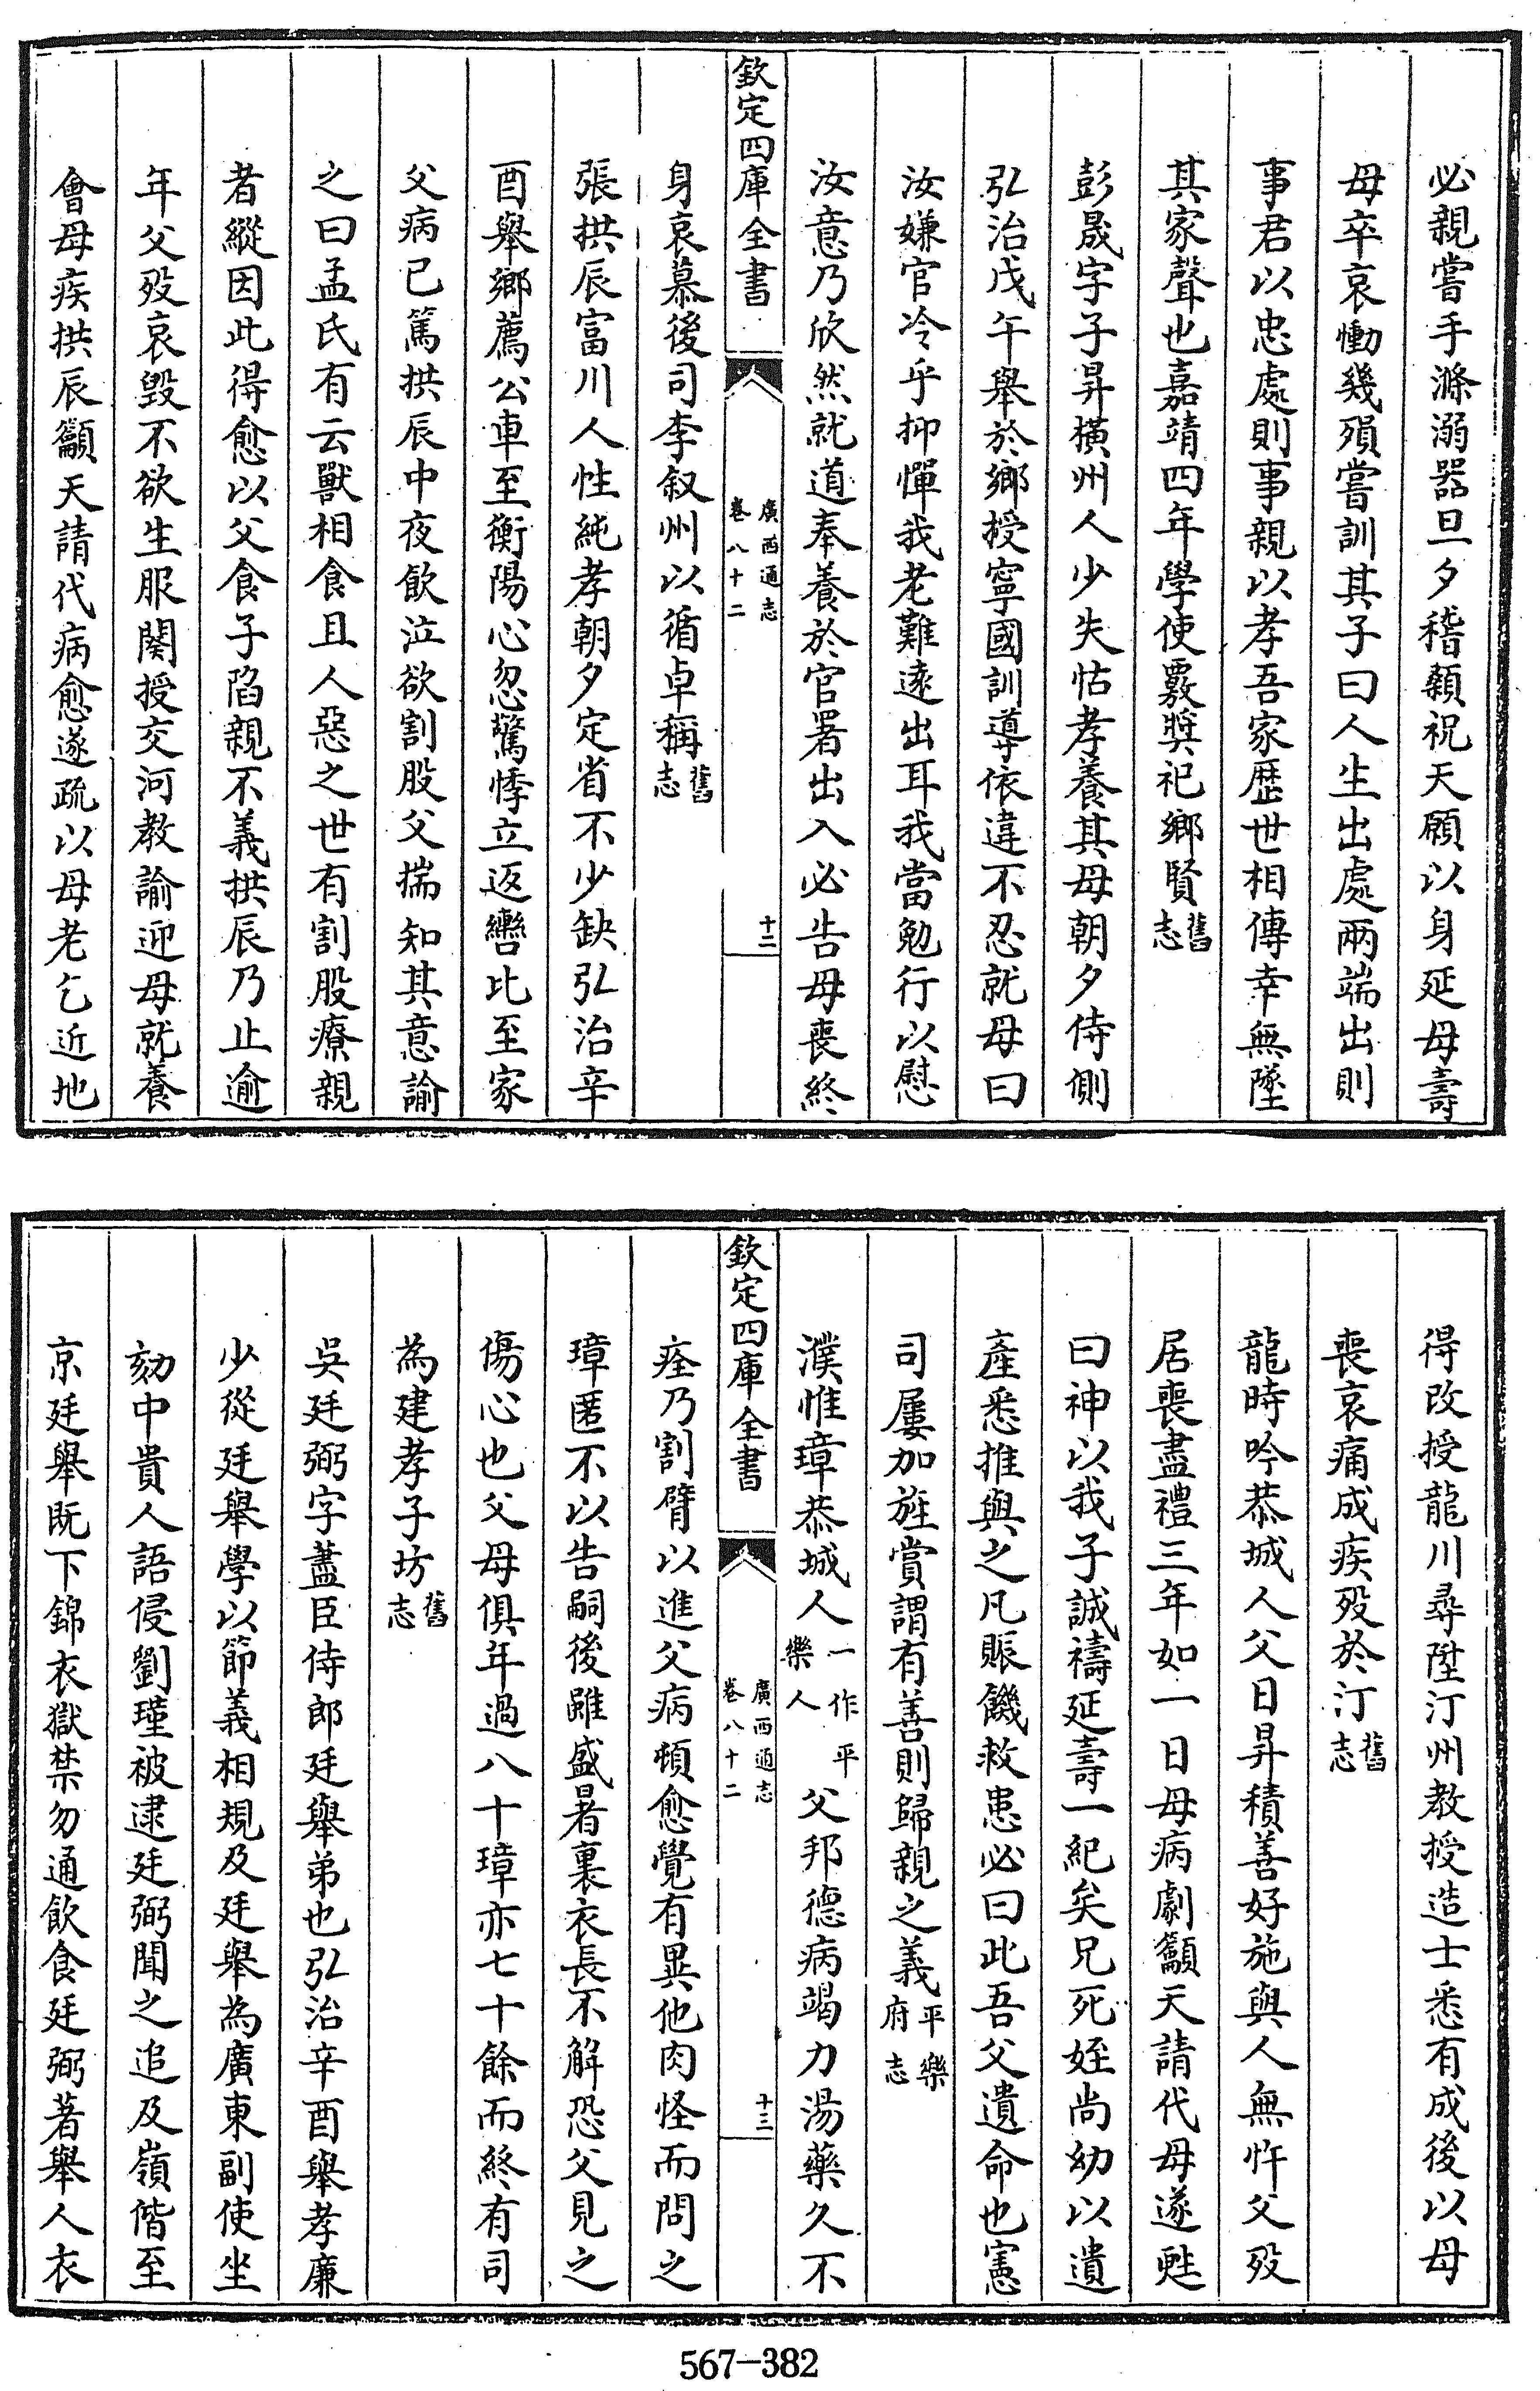 必親嘗手滌溺器旦夕稽顙祝天願以身延母壽
母卒哀慟幾殞嘗訓其子曰人生出處兩端出則
事君以忠處則事親以孝吾家歷世相傳幸無墜
其家聲也嘉靖四年學使覈奬祀鄉賢舊志
彭晟字子昇橫州人少失怙孝養其母朝夕侍側
弘治戊午舉於鄉授寧國訓導依違不忍就母曰
汝嫌官冷乎抑憚我老難遠出耳我當勉行以慰
汝意乃欣然就道奉養於官署出入必告母喪終
欽定四庫全書 廣西通志卷八十二 十二
身哀慕後司李叙州以循卓稱舊志
張拱辰富川人性純孝朝夕定省不少缺弘治辛
酉舉鄉薦公車至衡陽心忽驚悸立返轡比至家
父病已篤拱辰中夜飲泣欲割股父揣知其意諭
之曰孟氏有云獸相食且人惡之世有割股療親
者縱因此得愈以父食子陷親不義拱辰乃止逾
年父歿哀毀不欲生服闋授交河教諭迎母就養
會母疾拱辰籲天請代病愈遂疏以母老乞近地
得改授龍川尋陞汀州教授造士悉有成後以母
喪哀痛成疾歿於汀舊志
龍時吟恭城人父日昇積善好施與人無忤父歿
居喪盡禮三年如一日母病劇籲天請代母遂甦
曰神以我子誠禱延壽一紀矣兄死姪尚幼以遺
產悉推與之凡賑饑救患必曰此吾父遺命也憲
司屢加旌賞謂有善則歸親之義平樂府志
濮惟璋恭城人一作平樂人父邦德病竭力湯藥久不
欽定四庫全書 廣西通志卷八十二 十三
痊乃割臂以進父病頓愈覺有異他肉怪而問之
璋匿不以告嗣後雖盛暑裏衣長不解恐父見之
傷心也父母俱年過八十璋亦七十餘而終有司
為建孝子坊舊志
吳廷弼字藎臣侍郎廷舉弟也弘治辛酉舉孝廉
少從廷舉學以節義相規及廷舉為廣東副使坐
劾中貴人語侵劉瑾被逮廷弼聞之追及嶺偕至
京廷舉既下錦衣獄禁勿通飲食廷弼著舉人衣
567-382